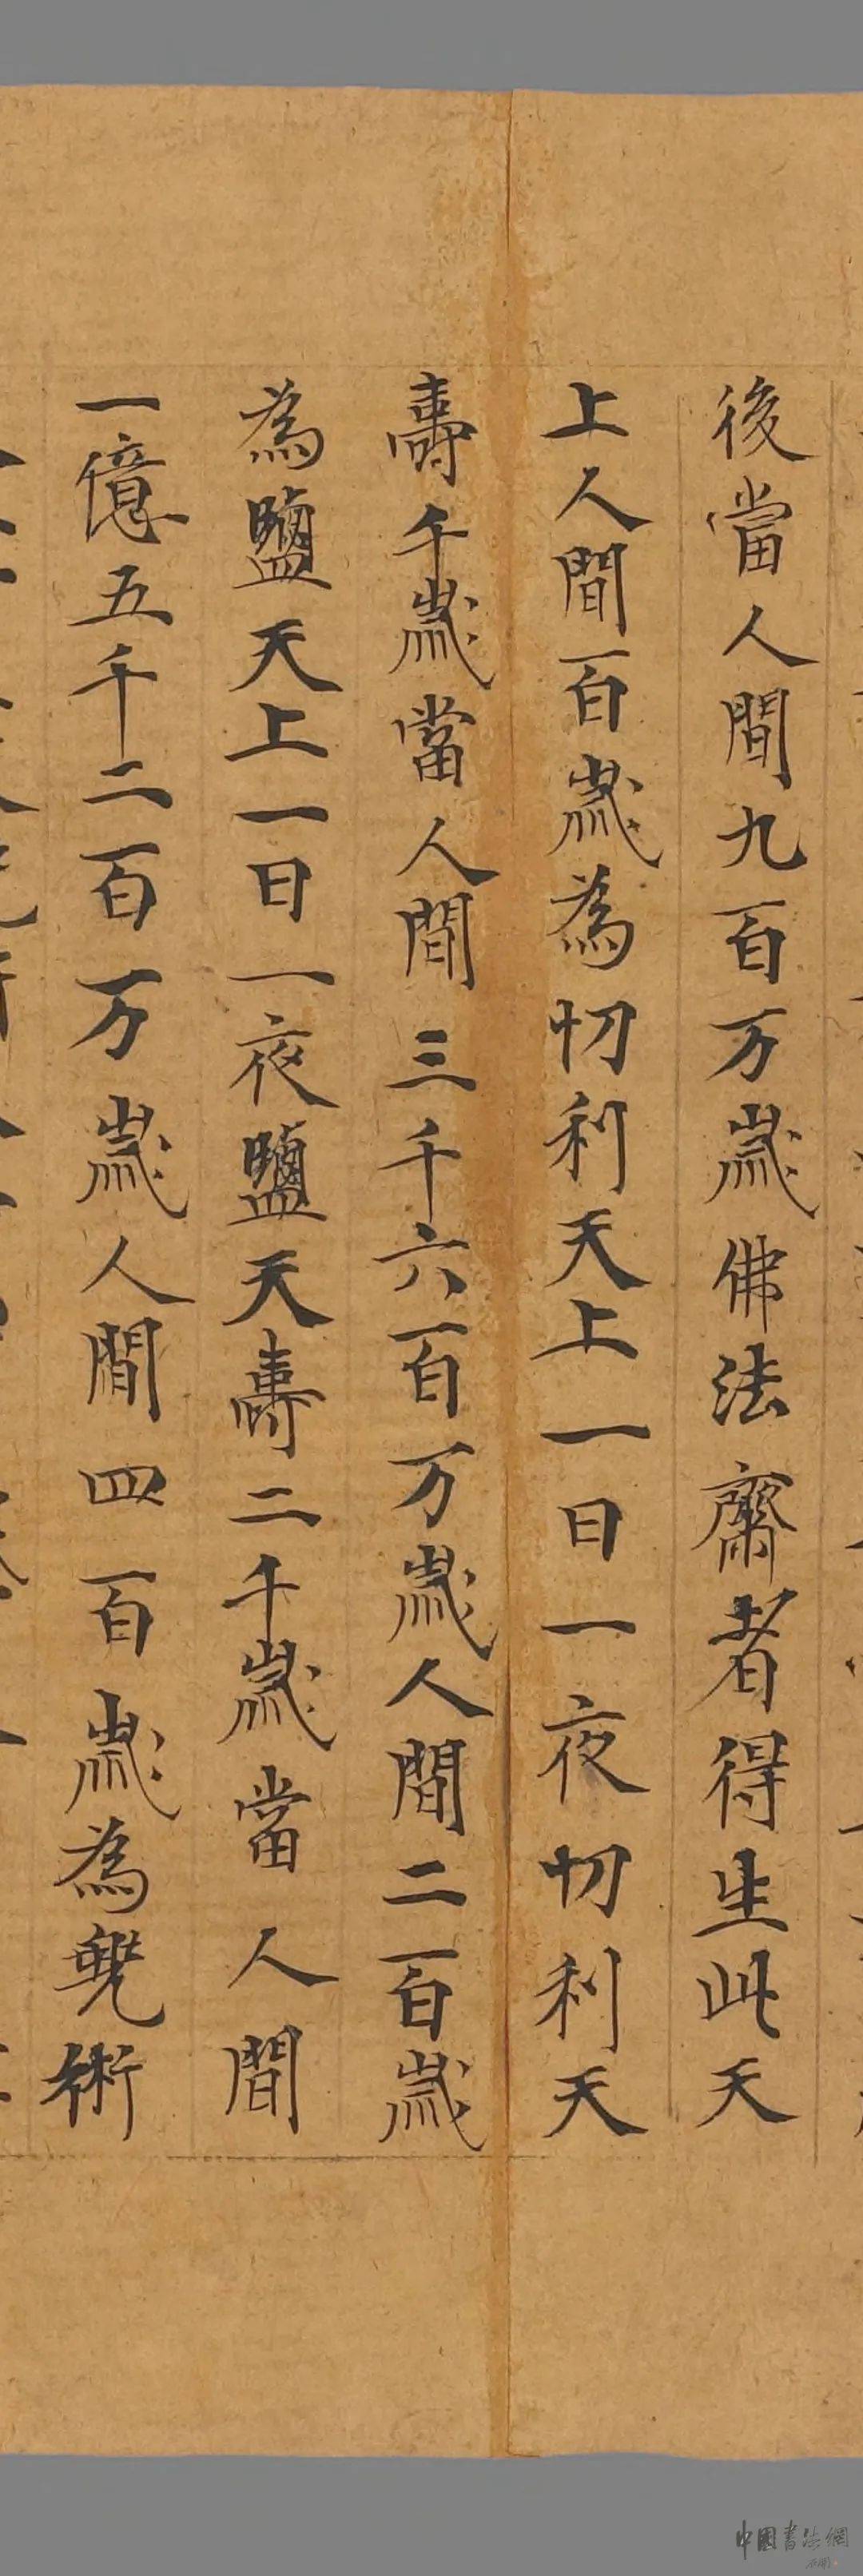 後當人間九百万歲佛法齋者得生此天
上人間百歲為忉利天上一日一夜忉利天
壽千歲當人間三千六百万歲人間二百歲
為鹽天上一日一夜鹽天壽二千歲當人間
一億五千二百万歲人間四百歲為兜術
中国书法网